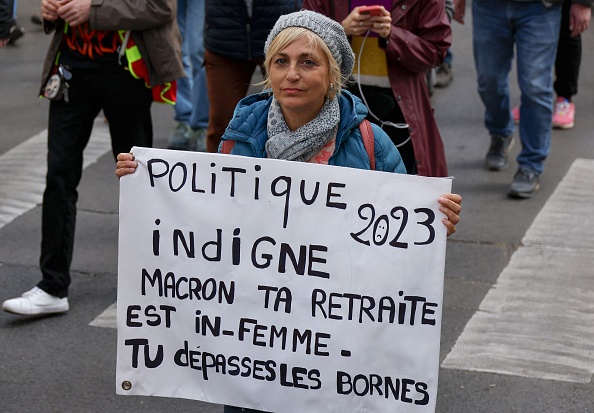 POLITIQUE
2023
iNdiGNE
MACRON TA RETRAITE
EST IN-FEMME-
TU DÉPASSES LES BORNES